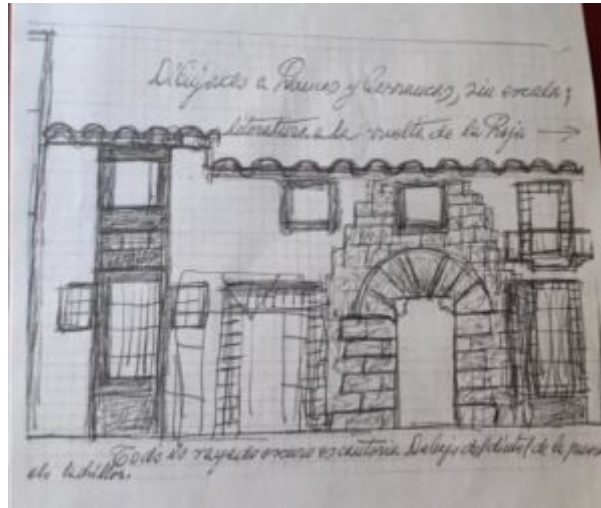 Dibujados a Ramos y Barrancas, sin escala;
literatura a la vuelta de la Hoja →
Todo lo rayado oscuro es cantería. Debajo del dintel de la puerta
els ladrillos